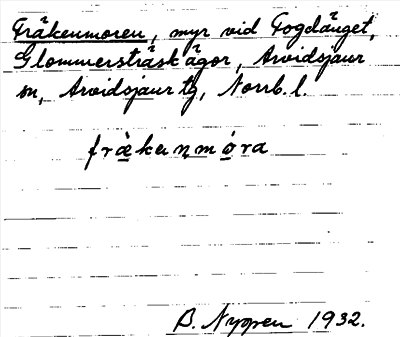 Fräkenmoren, myr vid Fogdänget,
Glommersträskägor, Arvidsjaur
sn, Arvidsjaur tg, Norrb. l.
fräkenmóra
B. Nyppen 1932.